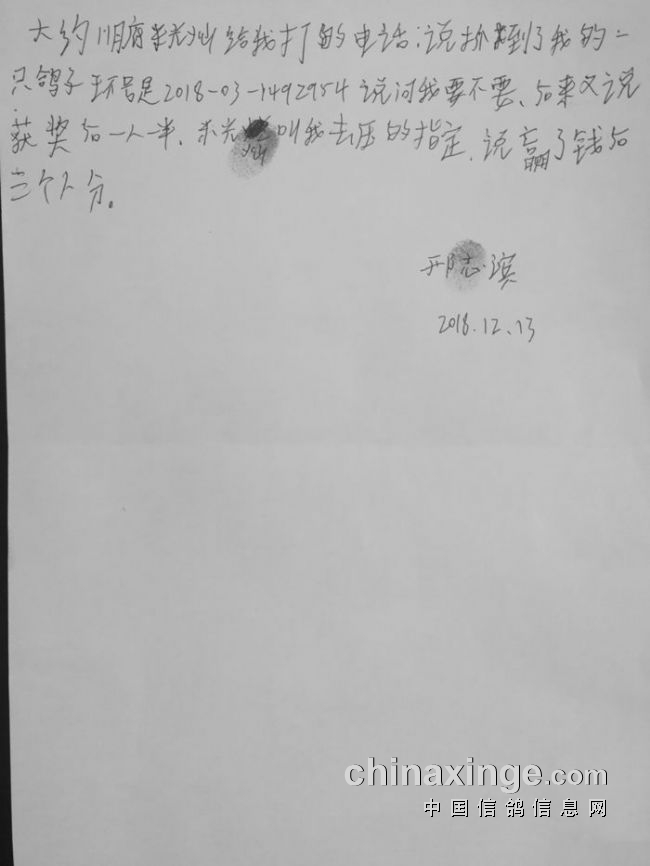 大约11月底米光灿给我打的电话:说抓到了我的一
只鸽子环号是2018-03-1492954说问我要不要、后来又说
获奖后一人一半.米光灿叫我去压的指定.说赢了钱后
三个人分。
邢志滨
2018.12.13
chinaxinge.com
中国信鸽信息网